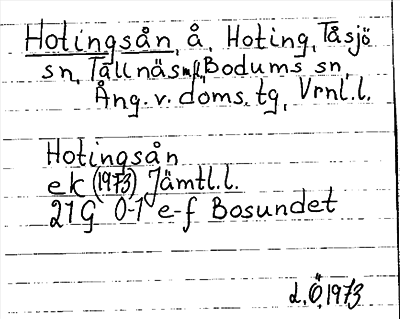 Hotingsån, å, Hoting, Tåsjö
sn, Tallnäs Bodums sn,
Ång. v. doms. tg, Vrnl.l.
Hotingsån
ek (1973) Jämtl.l.
21G 0-1 e-f Bosundet
d.Ö.1973